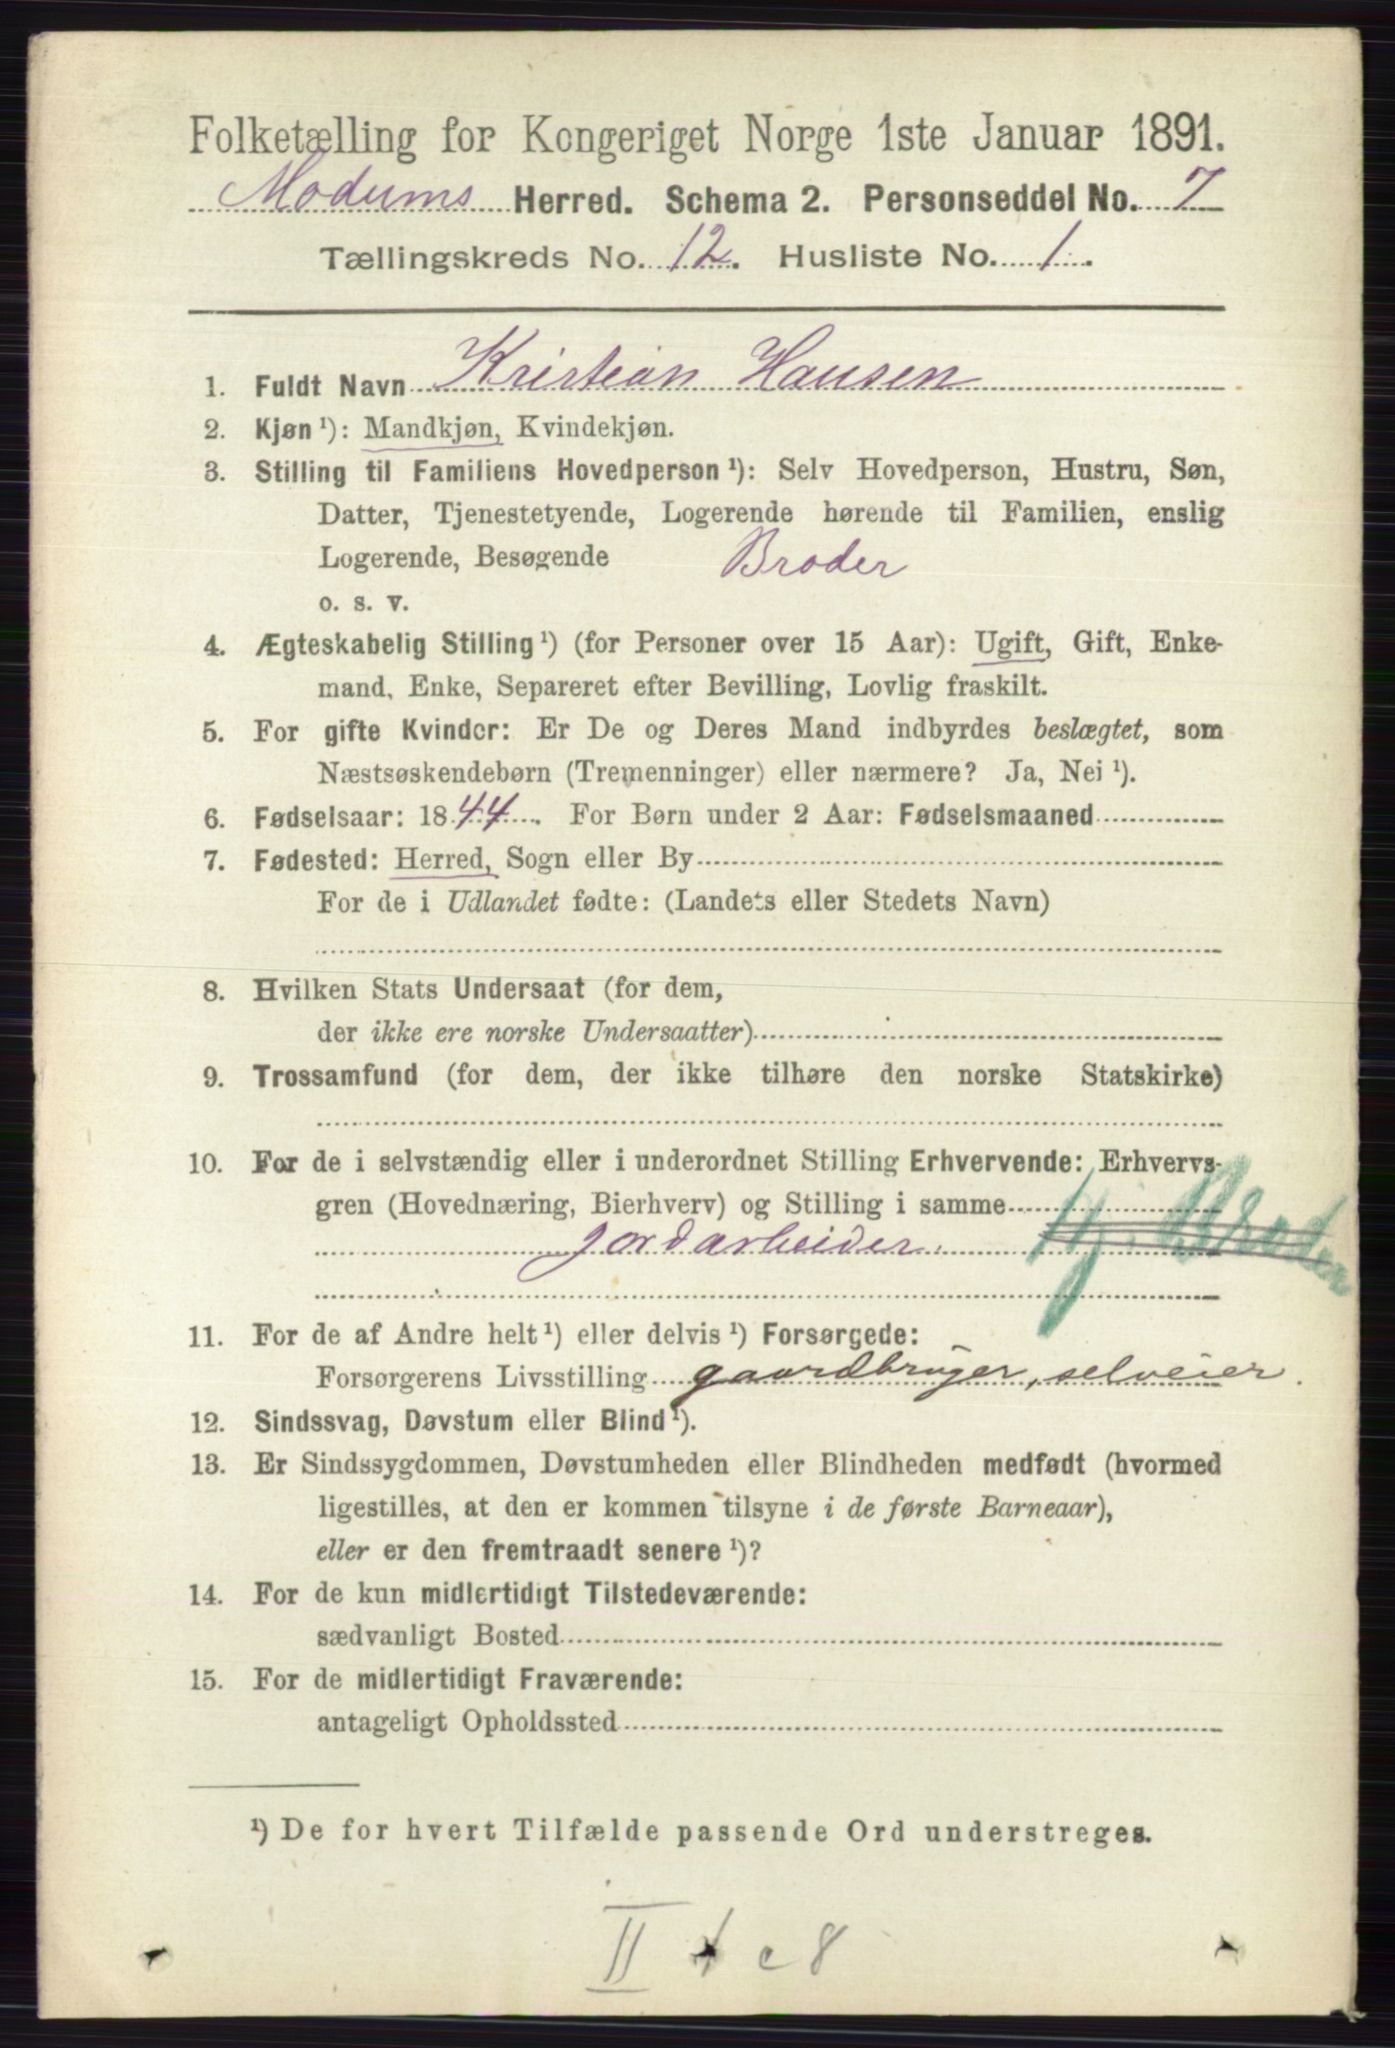 Folketælling for Kongeriget Norge 1ste Januar 1891.
Modums Herred. Schema 2. Personseddel No. 7
Tællingskreds No. 12. Husliste No. 1.
1. Fuldt Navn Kristian Hansen
2. Kjøn¹): Mandkjøn, Kvindekjøn.
3. Stilling til Familiens Hovedperson¹): Selv Hovedperson, Hustru, Søn,
Datter, Tjenestetyende, Logerende hørende til Familien, enslig
Logerende, Besøgende Broder
o. s. v.
4. Ægteskabelig Stilling¹) (for Personer over 15 Aar): Ugift, Gift, Enke-
mand, Enke, Separeret efter Bevilling, Lovlig fraskilt.
5. For gifte Kvinder: Er De og Deres Mand indbyrdes beslægtet, som
Næstsøskendebørn (Tremenninger) eller nærmere? Ja, Nei¹).
6. Fødselsaar: 1844. For Børn under 2 Aar: Fødselsmaaned
7. Fødested: Herred, Sogn eller By
For de i Udlandet fødte: (Landets eller Stedets Navn)
8. Hvilken Stats Undersaat (for dem,
der ikke ere norske Undersaatter)
9. Trossamfund (for dem, der ikke tilhøre den norske Statskirke)
10. For de i selvstændig eller i underordnet Stilling Erhvervende: Erhvervs-
gren (Hovednæring, Bierhverv) og Stilling i samme
jordarbeider. Broder
11. For de af Andre helt¹) eller delvis¹) Forsørgede:
Forsørgerens Livsstilling gaardbruger, selveier.
12. Sindssvag, Døvstum eller Blind¹).
13. Er Sindssygdommen, Døvstumheden eller Blindheden medfødt (hvormed
ligestilles, at den er kommen tilsyne i de første Barneaar),
eller er den fremtraadt senere¹)?
14. For de kun midlertidigt Tilstedeværende:
sædvanligt Bosted
15. For de midlertidigt Fraværende:
antageligt Opholdssted
¹) De for hvert Tilfælde passende Ord understreges.
II c 8